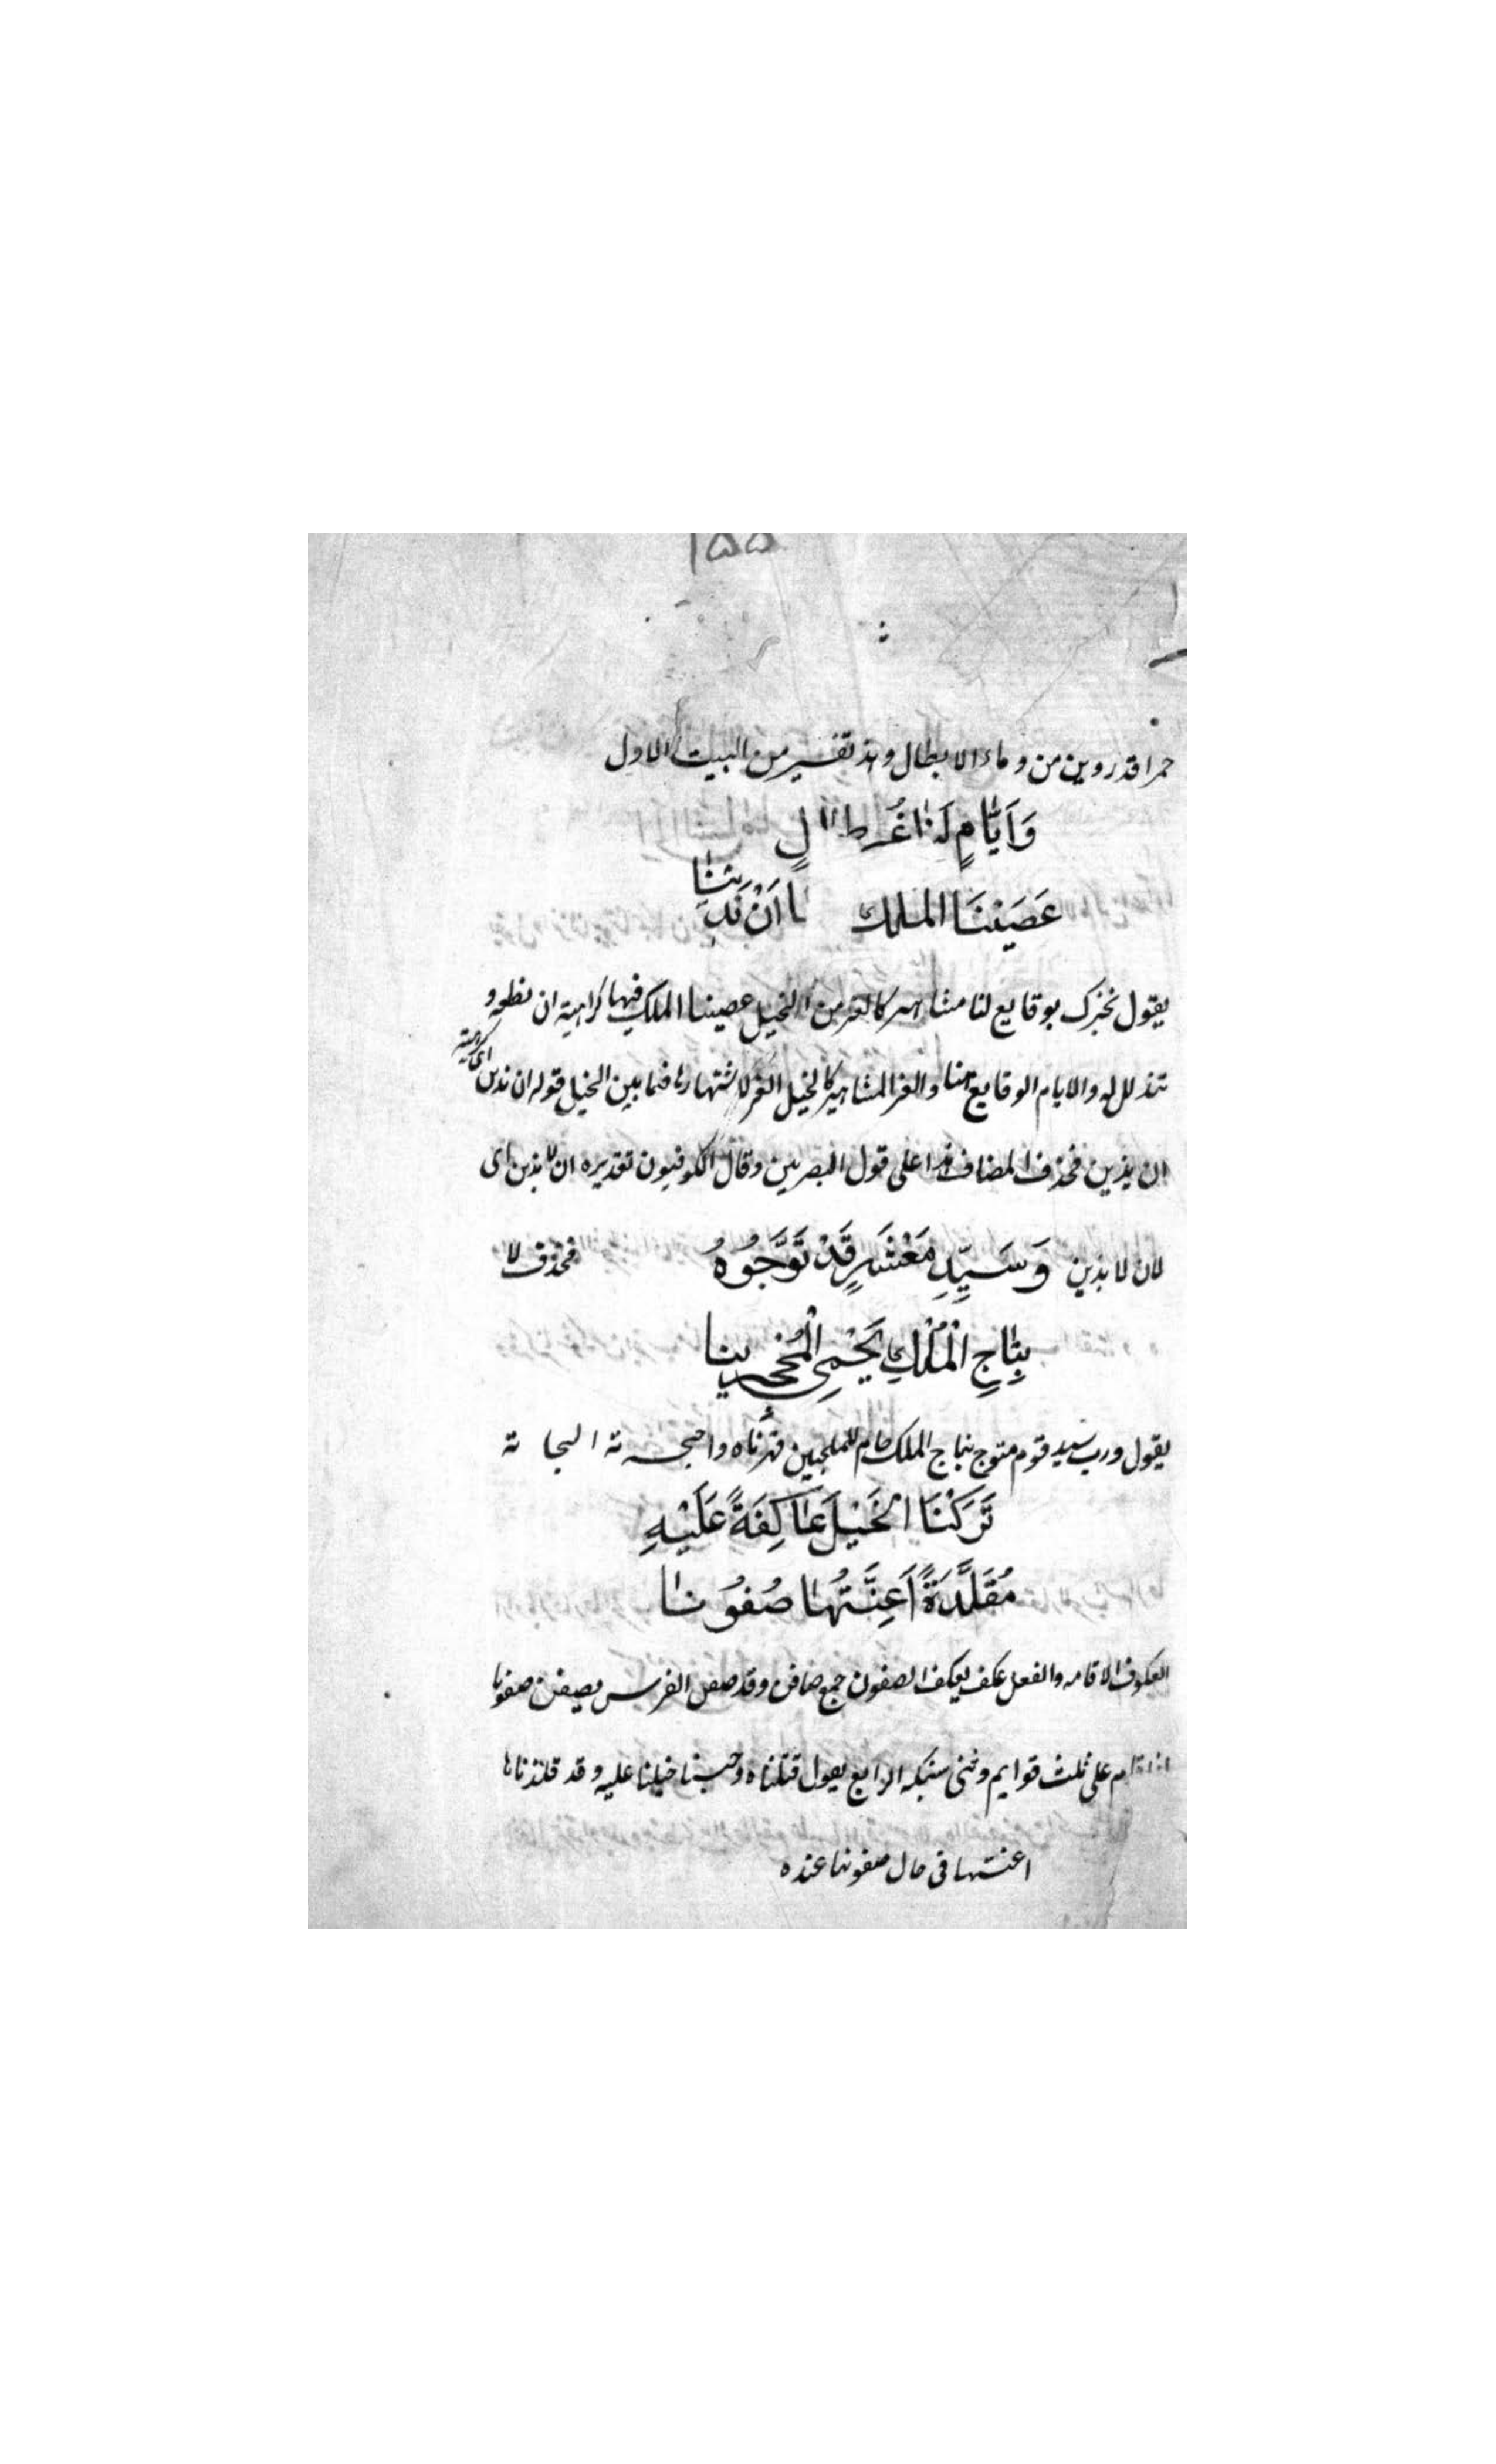 ١٥٥
حمرا قد روين من دماء الابطال وهذ تفسير من البيت الاول
وَاَيَّامٍ لَنَا غُرٍّ طِوَالٍ
عَصَيْنَا الملك اَنْ نَدِينَا
يقول نخبرك بوقايع لنا مشاهير كالغر من الخيل عصينا الملك فيها كراهية ان نطيعه و
نتذلل له والايام الوقايع هنا والغر المشاهير كالخيل الغر لاشتهارها فيما بين الخيل قوله ان ندين اى كراهية
ان ندين فحذف المضاف هذا على قول البصريين وقال الكوفيون تقديره ان لا ندين اى
لان لا ندين فحذف لا
وَسَيِّدِ مَعْشَرٍ قَدْ تَوَّجُوهُ
بِتَاجِ الْمُلْكِ يَحْمِى الْمُحْجَرِينَا
يقول ورب سيد قوم متوج بتاج الملك حام للملجيين قهرناه
تَرَكْنَا الْخَيْلَ عَاكِفَةً عَلَيْهِ
مُقَلَّدَةً اَعِنَّتُهَا صُفُونَا
العكوف الاقامه والفعل عكف يعكف الصفون جمع صافن وقد صفن الفرس يصفن صفونا
اذا قام على ثلث قوايم وثنى سنبكه الرابع يقول قتلناه وحبسنا خيلنا عليه وقد قلدناها
اعنتها فى حال صفونها عنده